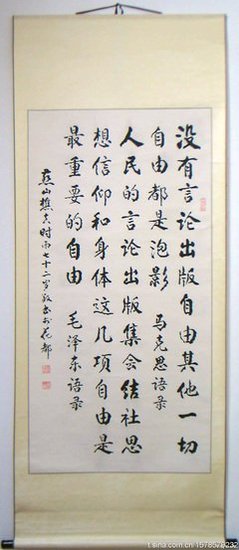 没有言论出版自由其他一切
自由都是泡影 马克思语录
人民的言论出版集会结社思
想信仰和身体这几项自由是
最重要的自由 毛泽东语录
山樵夫时雨七十二岁敬书于花都
t.sina.com.cn